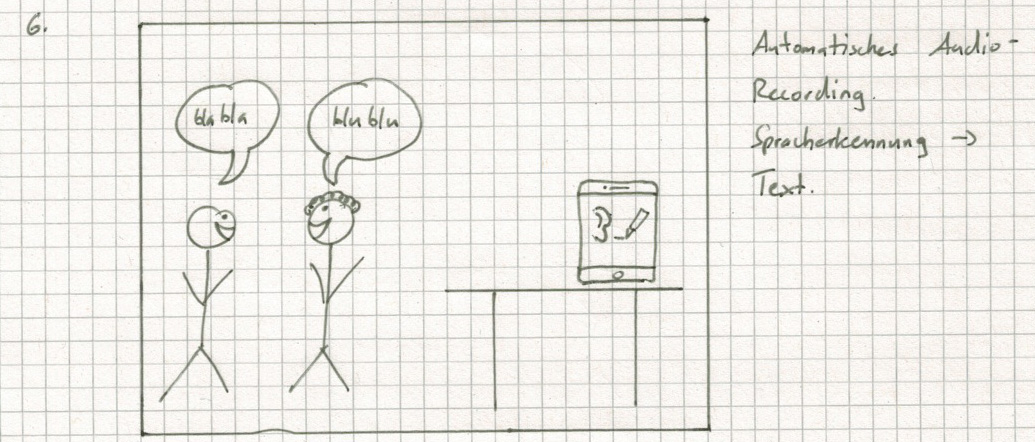 6.
bla bla
blu blu
Automatisches Audio-
Recording.
Spracherkennung →
Text.